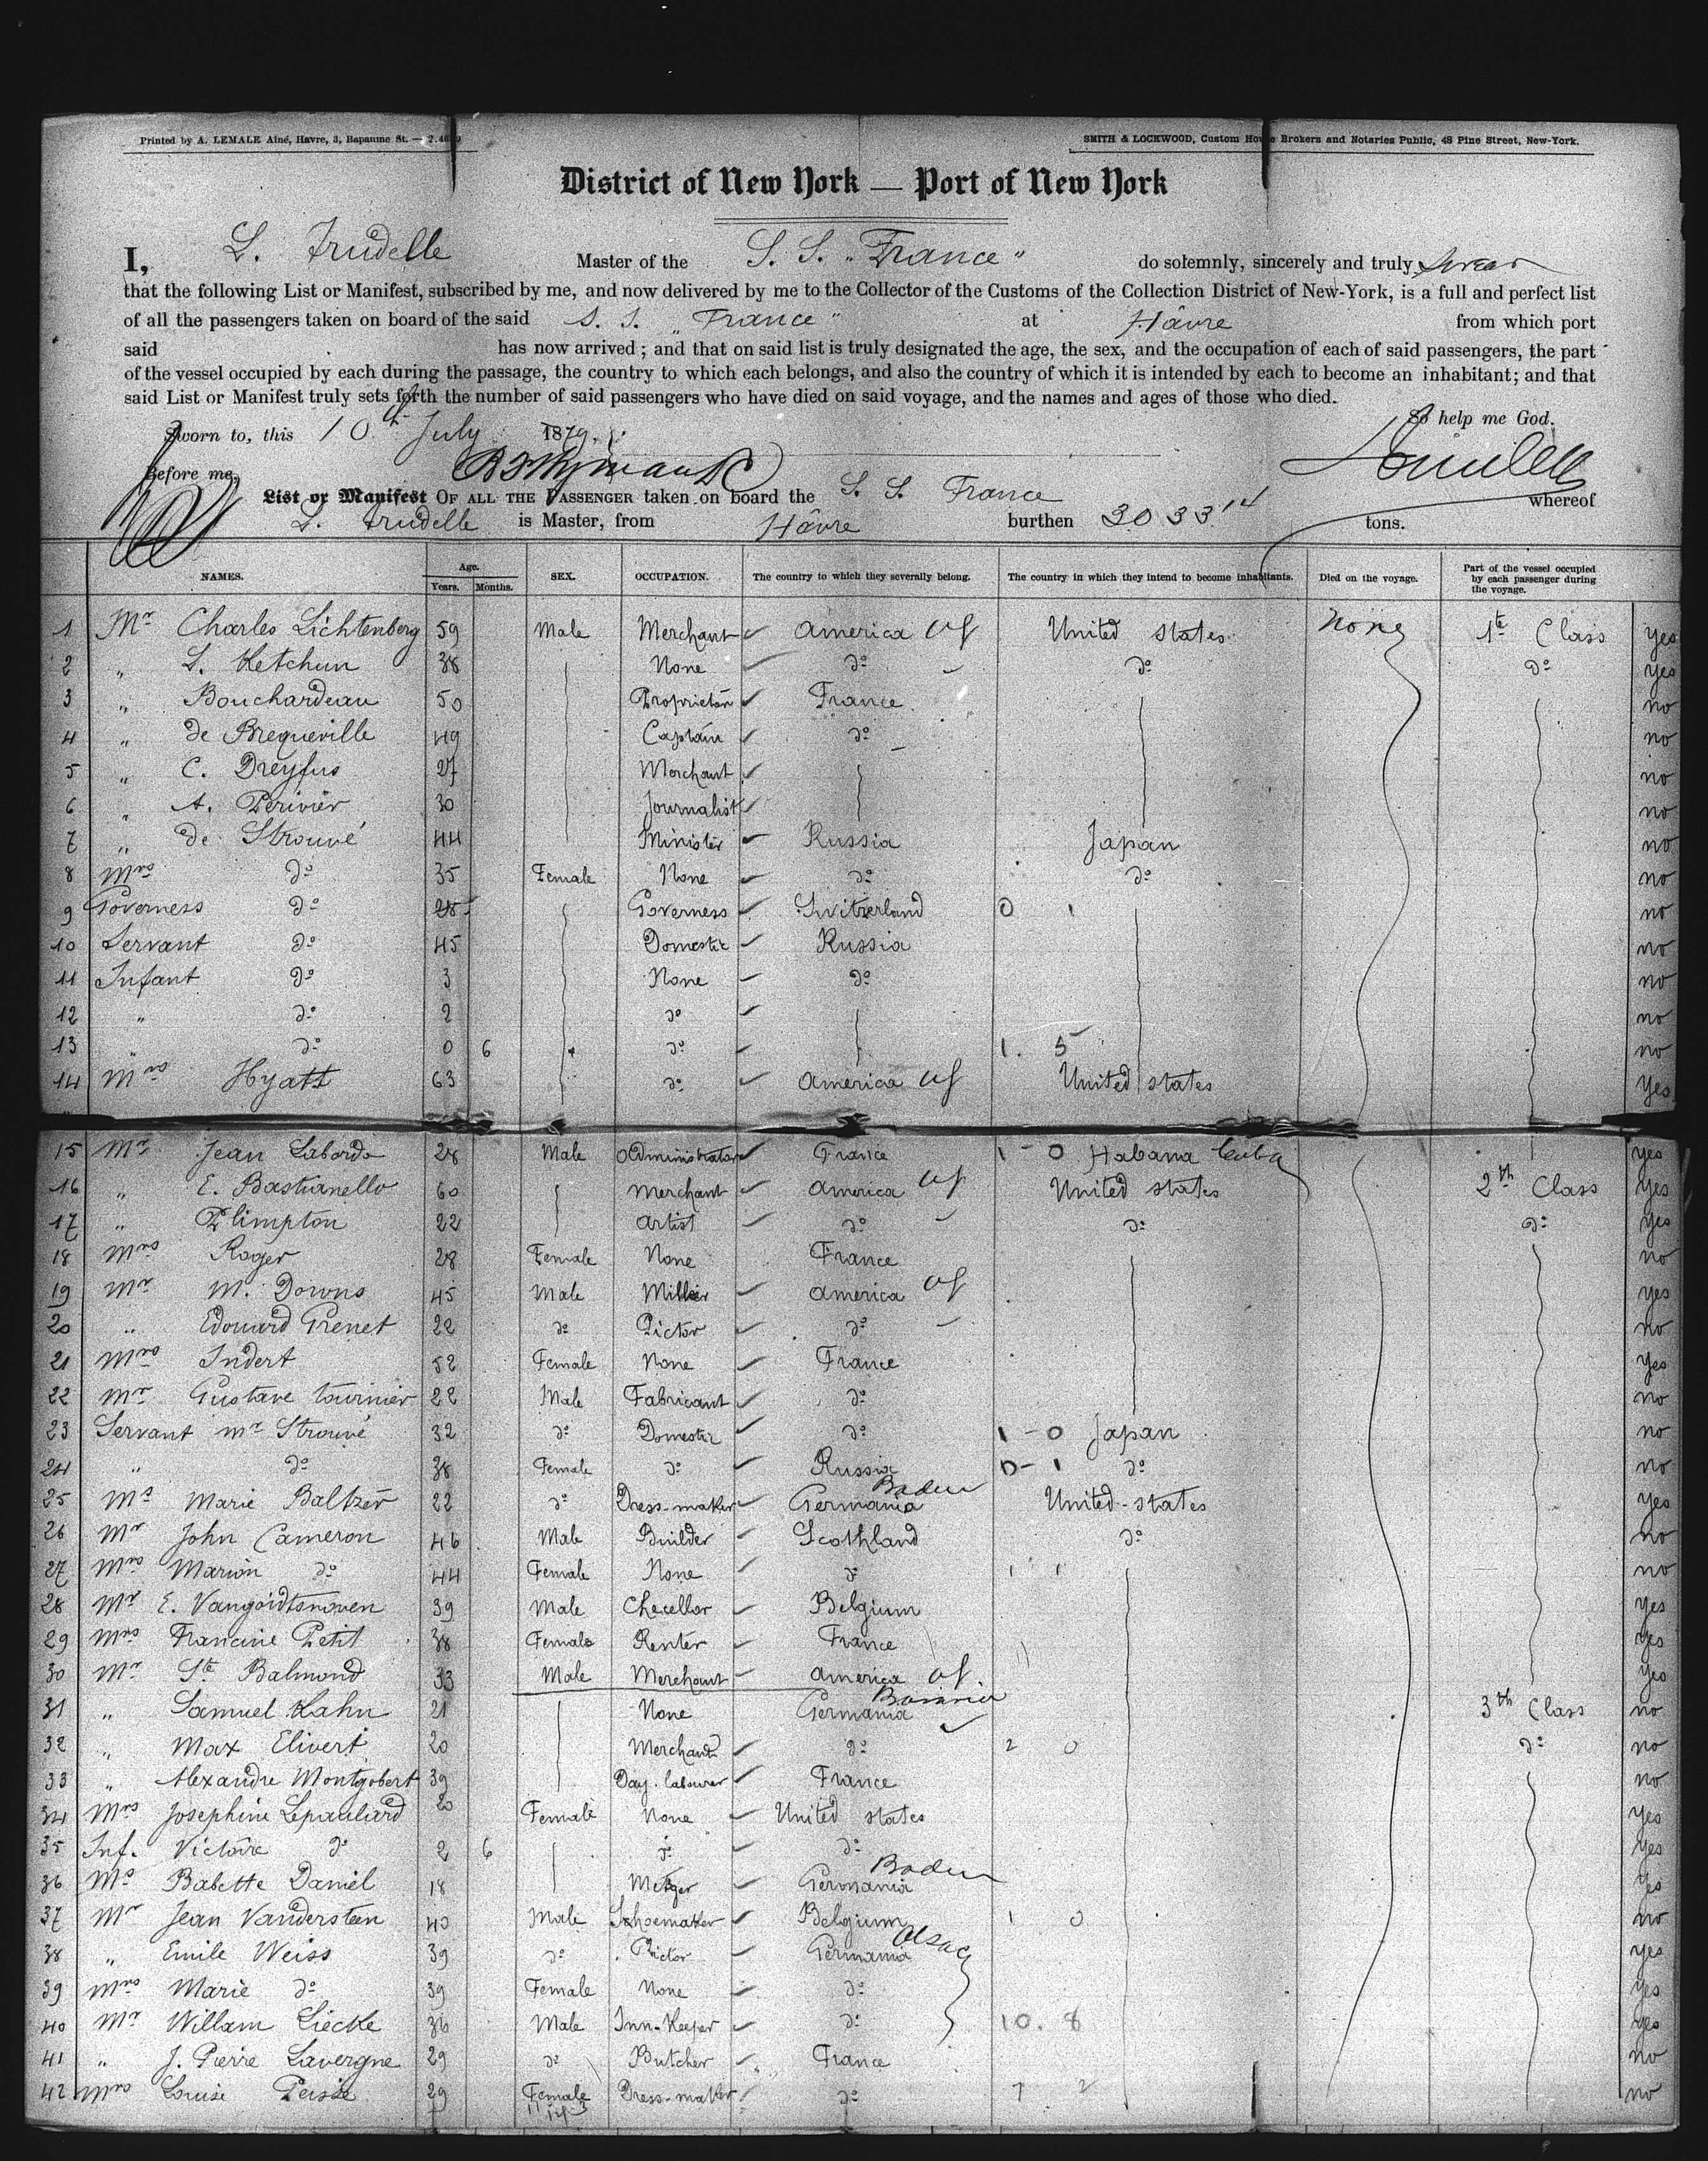 Printed by A. LEMALE Aîné, Havre, 3, Bapaume St. —
SMITH & LOCKWOOD, Custom House Brokers and Notaries Public, 48 Pine Street, New-York.
District of New York — Port of New York
I, L. Trudelle Master of the S. S. "France" do solemnly, sincerely and truly swear
that the following List or Manifest, subscribed by me, and now delivered by me to the Collector of the Customs of the Collection District of New-York, is a full and perfect list
of all the passengers taken on board of the said S. S. "France" at Hâvre from which port
said has now arrived; and that on said list is truly designated the age, the sex, and the occupation of each of said passengers, the part
of the vessel occupied by each during the passage, the country to which each belongs, and also the country of which it is intended by each to become an inhabitant; and that
said List or Manifest truly sets forth the number of said passengers who have died on said voyage, and the names and ages of those who died.
So help me God.
Sworn to, this 10th July 1879.
Before me,
List or Manifest OF ALL THE PASSENGER taken on board the S. S. France whereof
L. Trudelle is Master, from Hâvre burthen 3033 14 tons.
NAMES. Age. Years. Months. SEX. OCCUPATION. The country to which they severally belong. The country in which they intend to become inhabitants. Died on the voyage. Part of the vessel occupied by each passenger during the voyage.
1 Mr Charles Lichtenberg 59 Male Merchant America of United States None 1te Class yes
2 " L. Ketchun 38 None do do do yes
3 " Bouchardeau 50 Proprietor France no
4 " de Brequeville 49 Captain do no
5 " C. Dreyfus 27 Merchant no
6 " A. Perivier 30 Journalist no
7 " de Strouvé 44 Minister Russia Japan no
8 Mrs do 35 Female None do do no
9 Governess do 25 Governess Switzerland 0 1 no
10 Servant do 45 Domestic Russia no
11 Infant do 3 None do no
12 " do 2 do no
13 " do 0 6 do 1. 5 no
14 Mrs Hyatt 63 do America of United States yes
15 Mr Jean Laborde 28 Male Administrator France 1-0 Habana Cuba yes
16 " E. Bastianello 60 Merchant America of United states 2th Class yes
17 " Plimpton 22 Artist do do do yes
18 Mrs Roger 28 Female None France no
19 Mr M. Downs 45 Male Miller America of yes
20 " Edouard Grenet 22 do Pictor do no
21 Mrs Indert 52 Female None France yes
22 Mr Gustave Tournier 22 Male Fabricant do no
23 Servant Mr Strouvé 32 do Domestic do 1-0 Japan no
24 " do 38 Female do Russia 0-1 do no
25 Ms Marie Baltzer 22 do Dress-maker Germania Baden United-states yes
26 Mr John Cameron 46 Male Builder Scothland do no
27 Mrs Marion do 44 Female None do 1 1 no
28 Mr E. Vangoidtsnoven 39 Male Checellor Belgium yes
29 Mrs Francine Petit 38 Female Renter France yes
30 Mr St Balmond 33 Male Merchant America of yes
31 " Samuel Kahn 21 None Germania 3th Class no
32 " Max Elivert 20 Merchand do 2 0 do no
33 " Alexandre Montgobert 39 Day-labourer France no
34 Mrs Josephine Lepaulard 20 Female None United states yes
35 Inf. Victoire do 2 6 do do yes
36 Ms Babette Daniel 18 Germania Baden yes
37 Mr Jean Vandersteen 40 Male Schoemaker Belgium 1 0 no
38 " Emile Weiss 39 do Pictor Germania Alsac yes
39 Mrs Marie do 39 Female None do yes
40 Mr Willam Liecke 36 Male Inn-Keeper do 10. 8 yes
41 " J. Pierre Lavergne 29 do Butcher France no
42 Mrs Louise 29 Female Dress-maker do 7 2 no